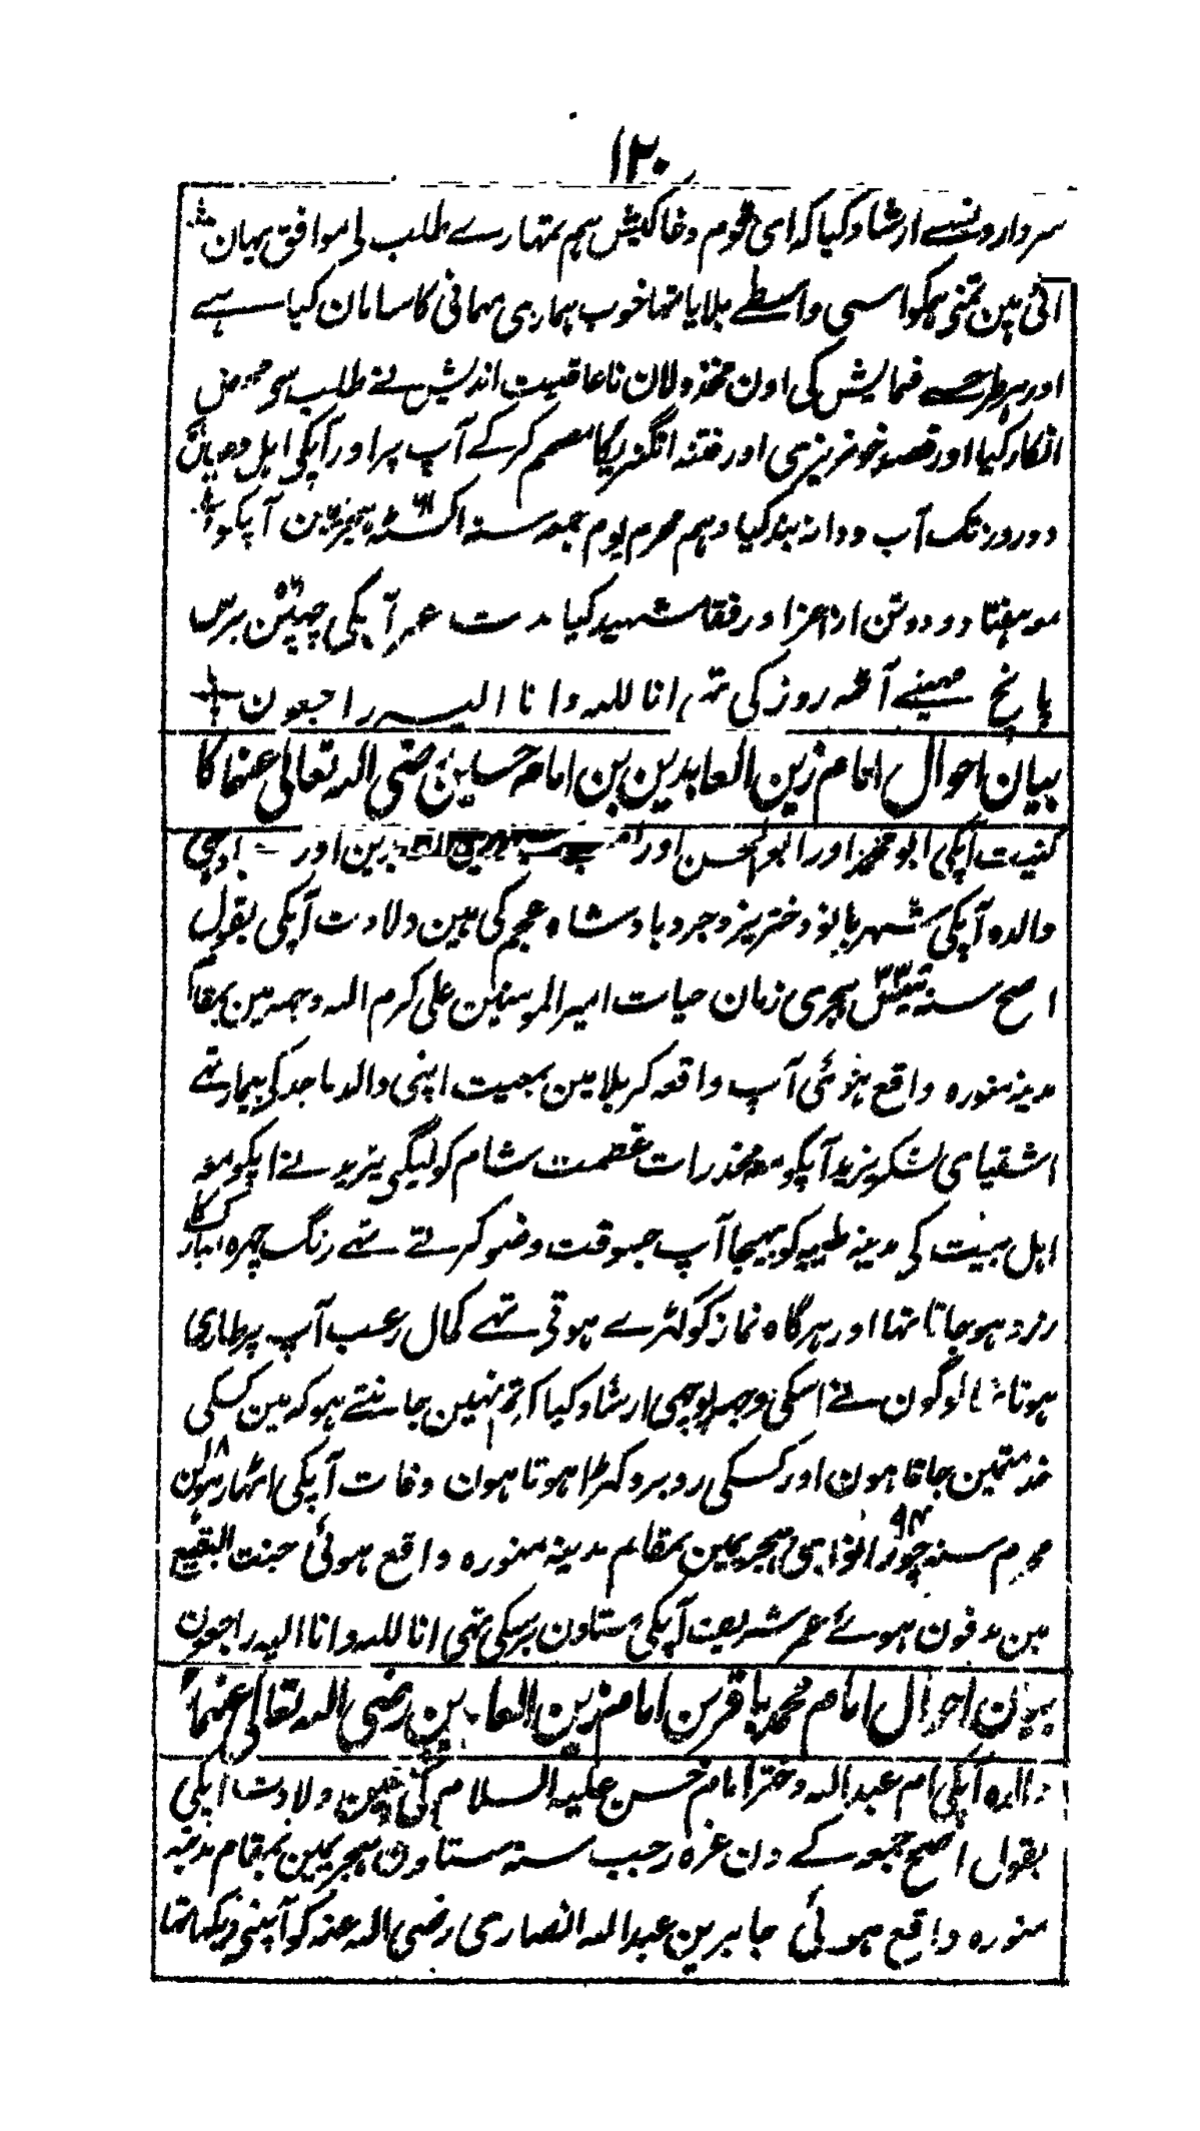 ۱۲۰
سردارونسے ارشاد کیا کہ ای قوم دغا کیش ہم تمہارے طلب کی موافق یہان
آئی ہین تمنی ہمکو اسی واسطے بلایا تھا خوب ہماری مہمانی کا سامان کیا ہے
اور ہر طرحسے فہمایش کی اون مخذولان ناعاقبت اندیش نے طلب سے
انکار کیا اور قصد خونریزی اور فتنہ انگیزیکا مصمم کر کے آپ پر اور آپکی اہل وعیال
دو روز تک آب و دانہ بند کیا دہم محرم یوم جمعہ سنہ اکسٹہ ہجریمین آپکو
مع ہفتاد و دو تن از اعزا و رفقا شہید کیا مدت عمر آپکی چھپن برس
پانچ مہینے آٹھ روز کی تھی انا للہ وانا الیہ راجعون
بیان احوال امام زین العابدین بن امام حسین رضی اللہ تعالی عنہما کا
کنیت آپکی ابو محمد اور ابو الحسن اور
والدہ آپکی شہربانو دختر یزدجرد بادشاہ عجم کی ہین ولادت آپکی بقول
اصح سنہ ۳۳ تینتیس ہجری زمان حیات امیر المومنین علی کرم اللہ وجہہ مین بمقام
مدینہ منورہ واقع ہوئی آپ واقعہ کربلا مین بمعیت اپنی والد ماجد کی بیمار تھے
اشقیای لشکر یزید آپکو مع مخذرات عصمت شام کو لیگی یزید نے آپکو مع
اہل بیت کی مدینہ طیبہ کو بھیجا آپ جسوقت وضو کرتے تھے رنگ چہرہ مبارک کا
زرد ہو جاتا تھا اور ہرگاہ نماز کو کھڑے ہوتی تھے کمال رعب آپ پر طاری
ہوتا تھا لوگون نے اسکی وجہ پوچھی ارشاد کیا کہ تم نہین جانتے ہو کہ مین کسکی
خدمتمین جاتا ہون اور کسکی روبرو کھڑا ہوتا ہون وفات آپکی اٹھارہوین ۱۸
محرم سنہ ۹۴ چورانوی ہجریمین بمقام مدینہ منورہ واقع ہوئی جنت البقیع
مین مدفون ہوئے عمر شریف آپکی ستاون برسکی تھی انا للہ وانا الیہ راجعون
بیان احوال امام محمد باقر بن امام زین العابدین رضی اللہ تعالی عنہما
والدہ آپکی ام عبد اللہ دختر امام حسن علیہ السلام کی ہین ولادت آپکی
بقول اصح جمعہ کے دن غرہ رجب سنہ ستاون ہجریمین بمقام مدینہ
منورہ واقع ہوئی جابر بن عبد اللہ انصاری رضی اللہ عنہ کو آپنی دیکھا تھا